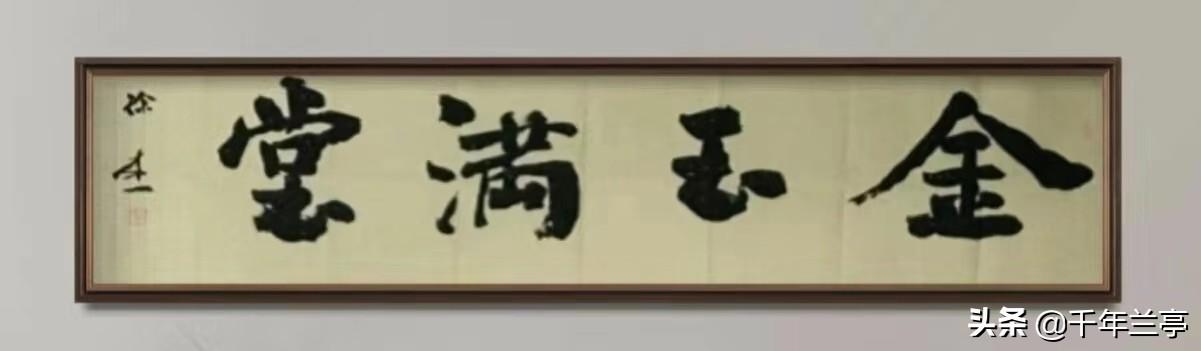 金玉满堂
徐杰
头条 @千年兰亭